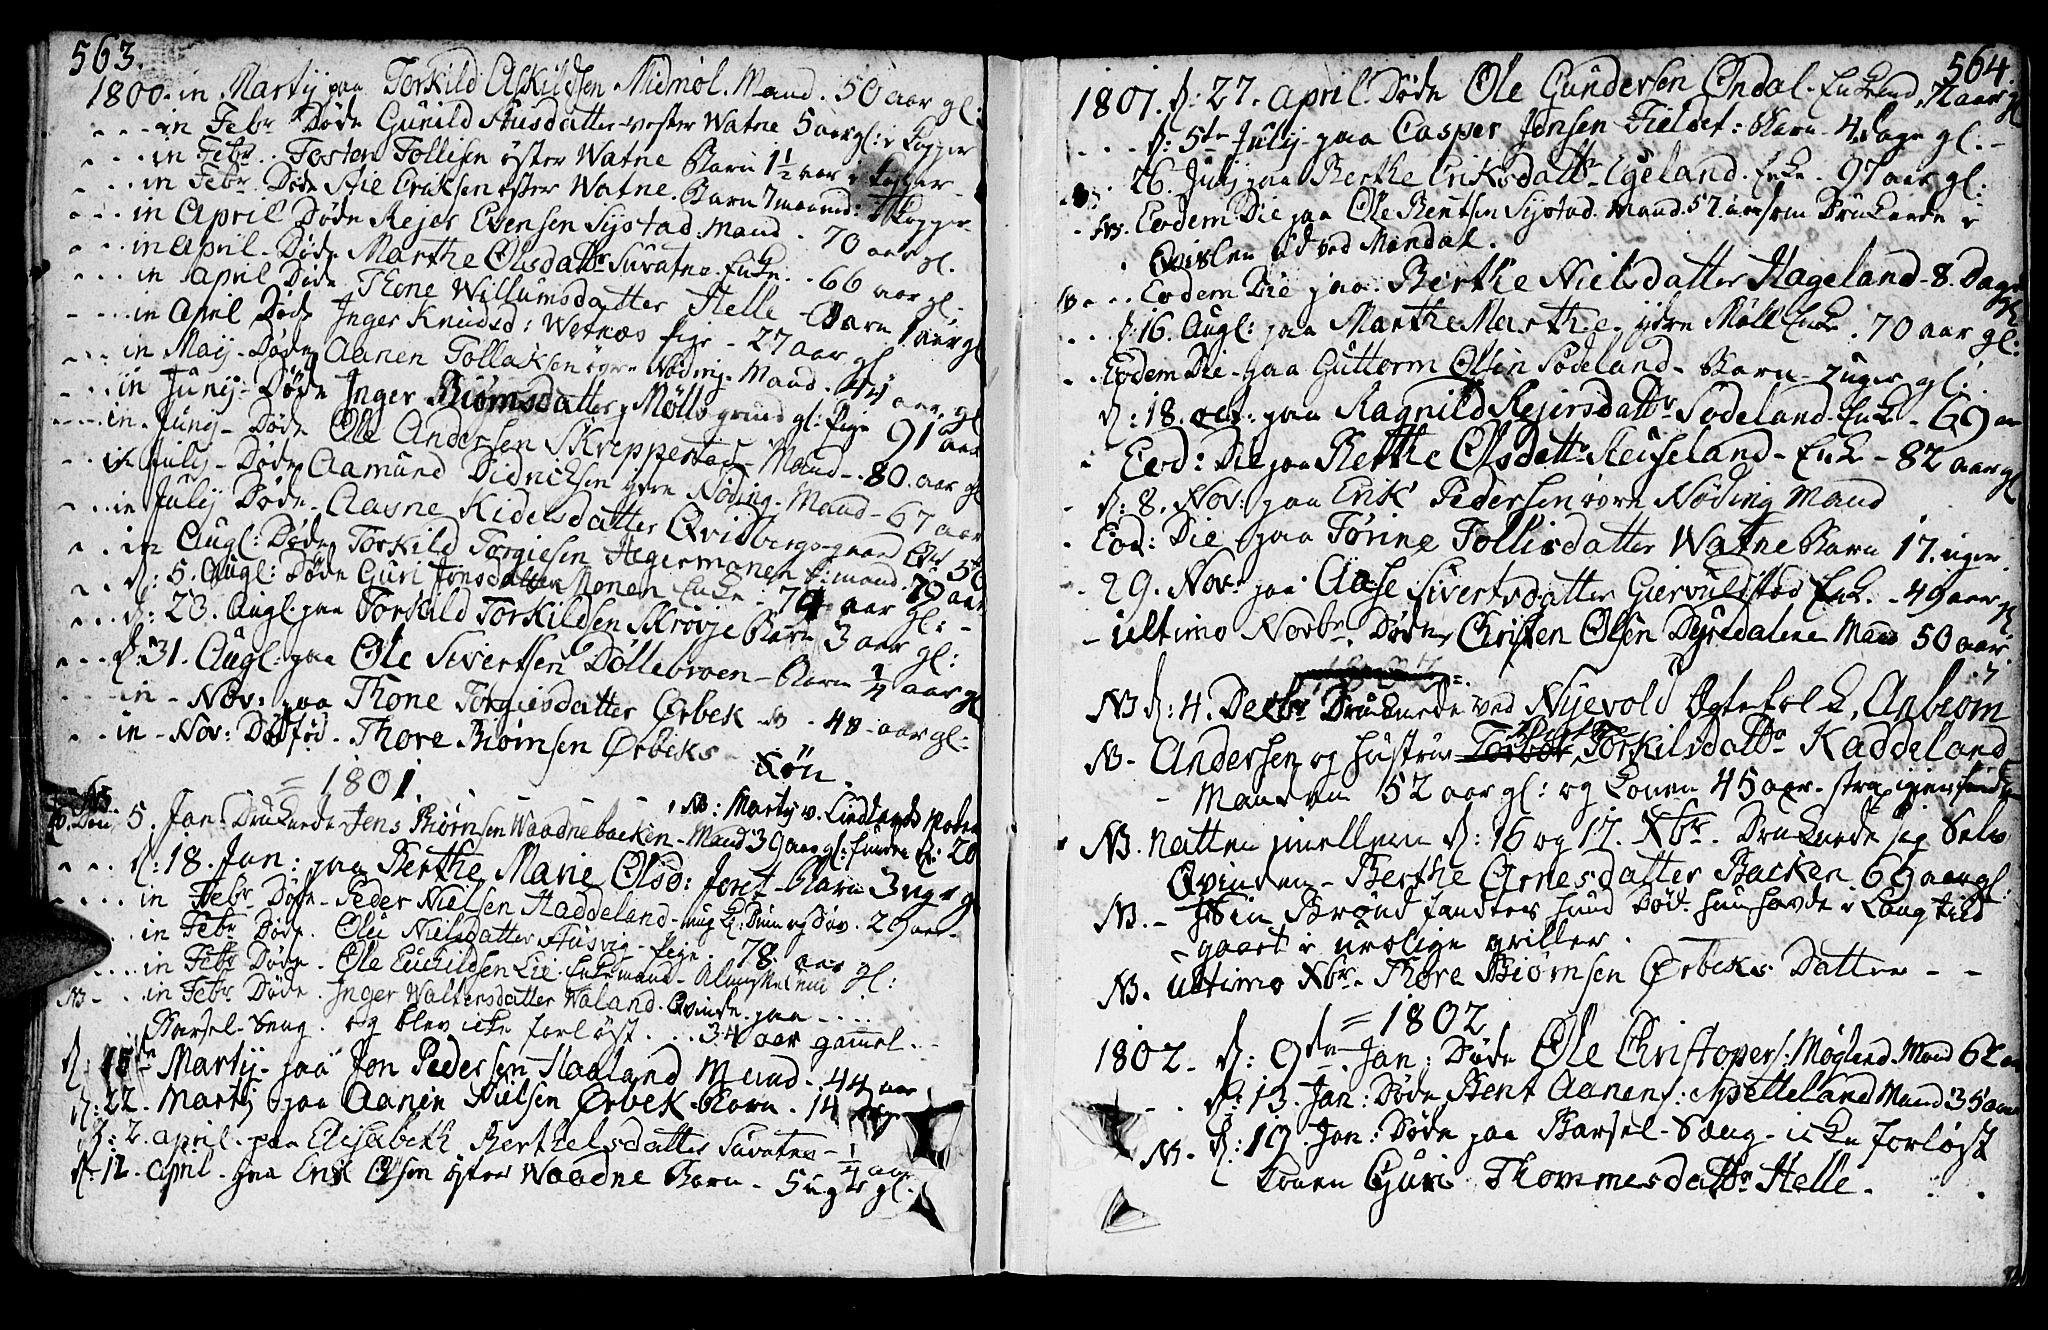 563.
1800. in Martij paa Torkild Askildsen Midmøl. Mand. 50 aar gl:
in Febr Døde Gunild Ausdatter vester Watne 5 aar gl: i Kopper
in Febr. Tosten Tollisen öster Watne Barn 1 1/2 aar i
in Febr. Døde Eriksen öster Watne. Barn 7 maaned: Kopper
in April Døde Rejer Evensen Sijstad Mand. 70 aar gl.
in April. Døde Marthe Olsdattr Suvatne Enke. 66 aar gl.
in April Døde Thone Willumsdatter Helle Barn 1 aar gl
in April Døde Inger Knudsd: Wetnes Pige - 27 aar gl
in Maij - Døde Aanen Tollaksen övre Nøding. Mand. 44 aar gl
in Junij - Døde Inger Biørnsdatter, Møllegrund gl: Pige 91 aar
in Junij - Døde Ole Andersen Skreppestad - Mand - 80 aar gl
in Julij - Døde Aamund Didricksen Nøding - Mand - 67 aar
in Julij Døde - Aasne Kidelsdatter Qvidbergs-
in Augl: Døde Torkild Torgiesen Hegermanen E:mand. 79 aar
d: 5. Augl: Døde Guri Jonsdatter Monen Enke - 74 aar gl:
d: 23. Augl. paa Torkild Torkildsen Skrovje Barn 3 aar gl:
d: 31. Augl: paa Ole Sivertsen Döllebroen - Barn 1/4 aar gl
in - Nov: paa Thone Torgiesdatter Ørbek - 48 - aar gl:
in - Nov: Dødfød - Thore Biørnsen Ørbeks Søn.
= 1801.
NB: Martij v. Lindlands
5. Jan: Druknede Jens Biørnsen Waadnebacken - Mand 39 aar gl: funden d: 20
d: 18. Jan: paa Berthe Marie Olsd: Foret - Barn 3 uger gl
in Febr. Døde - Peder Nielsen Haddeland - ung K: Dum og Døv. 29 aar
in Febr Døde. Oli Nielsdatter Ausvig - Pige - 78. aar
in Febr Døde. Ole Euchildsen Lie - Enkemand - Almuslem gl:
NB - in Febr Døde. Inger Waltersdatter Waland. Qvinde. paa
Barsel-Seng. og blev icke forløst. 34 aar gamel.
d: 15de Martij - paa Jon Pedersen Haaland Mand - 44 aar
d: 22. Martij paa Aanen Nielsen Ørbek - Barn. 14
d: 2. april. paa Elisabeth Berthelsdatter Suvatne - 1/4 aar
d. 12. april - paa Erik Olsen öster Waadne Barn - 5 uger gl.
564.
1801. d: 27. april. Døde Ole Gundersen Øndal. Enkemd. aar gl
d: 5te Julij - paa Casper Jensen Fieldet: Barn - 4 dage gl.-
26. Julij paa Berthe Eriksdattr. Egeland. Enke. 97 aar gl:
NB. Eodem Die paa Ole Bentsen Sijstad Mand. 57. aar som Druknede i
Qvislen ud ved Mandal.
Eodem Die paa. Berthe Nielsdatter Hageland - 8. Dage gl
d: 16. Augl: paa Marthe Marthe. ijdre Møll Enke. 70 aar gl:
Eodem Die - paa Guttorm Olsen Sodeland - Barn - 2 uger gl:
d: 18. oct: paa Ragnild Rejersdattr Sodeland. Enke - 69 aar
Eod: Die paa Berthe Olsdattr. Heiseland - Enke - 82 aar gl
d: 8. Nov: paa Erik Pedersen övre Nøding Mand
Eod: Die paa Torine Tollisdatter Watne Barn 17. uger.
29. Novr paa Aase Sivertsdatter Giervoldstad Enke - 49 aar gl
- ultimo Novbr. Døde, Christen Olsen Dyredalene Mand 50 aar.
NB d: 4. Decbr Druknede ved Nyevold Egtefolk, Anbiørn
NB - Andersen og Hustrue Torkilsdattr Kaddeland
- Manden 52 aar gl: og Konen 45 aar - strax igjen funden
NB. natten imellem d: 16 og 17. Xbr. Druknede sig Selv
Qvinden - Berthe Arnesdatter Backen 69 aar gl:
NB. - i sin Brønd fandtes hun Død. hun havde i Lang tiid
gaaet i urolige griller.
NB. ultimo Xbr. Thore Biørnsen Ørbeks Datter - -
= 1802
1802 - d: 9de. Jan: Døde Ole Christopers: Møgland Mand 62 aar
d: 13. Jan: Døde Bent Aanens: Spetteland Mand 35 aar
NB - d: 19. Jan: Døde paa Barsel-Seng - icke forløst
Konen Guri Thommesdattr Helle.